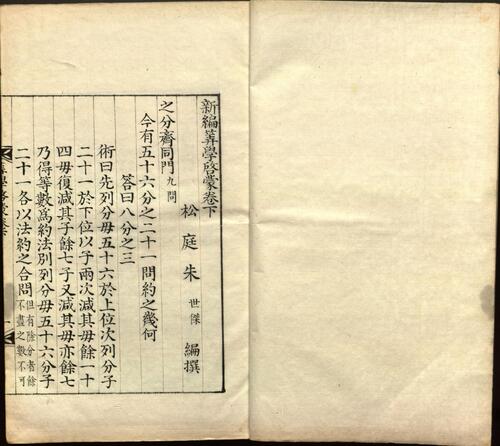 新編筭學啓蒙卷下
松庭朱世傑編撰
之分齊同門九問
今有五十六分之二十一問約之幾何
答曰八分之三
術曰先列分母五十六於上位次列分子
二十一於下位以子兩次減其母餘一十
四母復減其子餘七子又減其母亦餘七
乃得等數爲約法別列分毋五十六分子
二十一各以法約之合問但有除分者餘
不盡之數不可